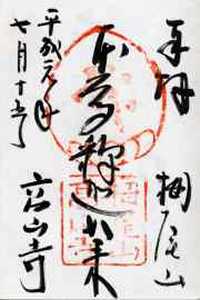 奉拝 栂尾山
本尊釈迦如来
平成元年
七月十
高山寺